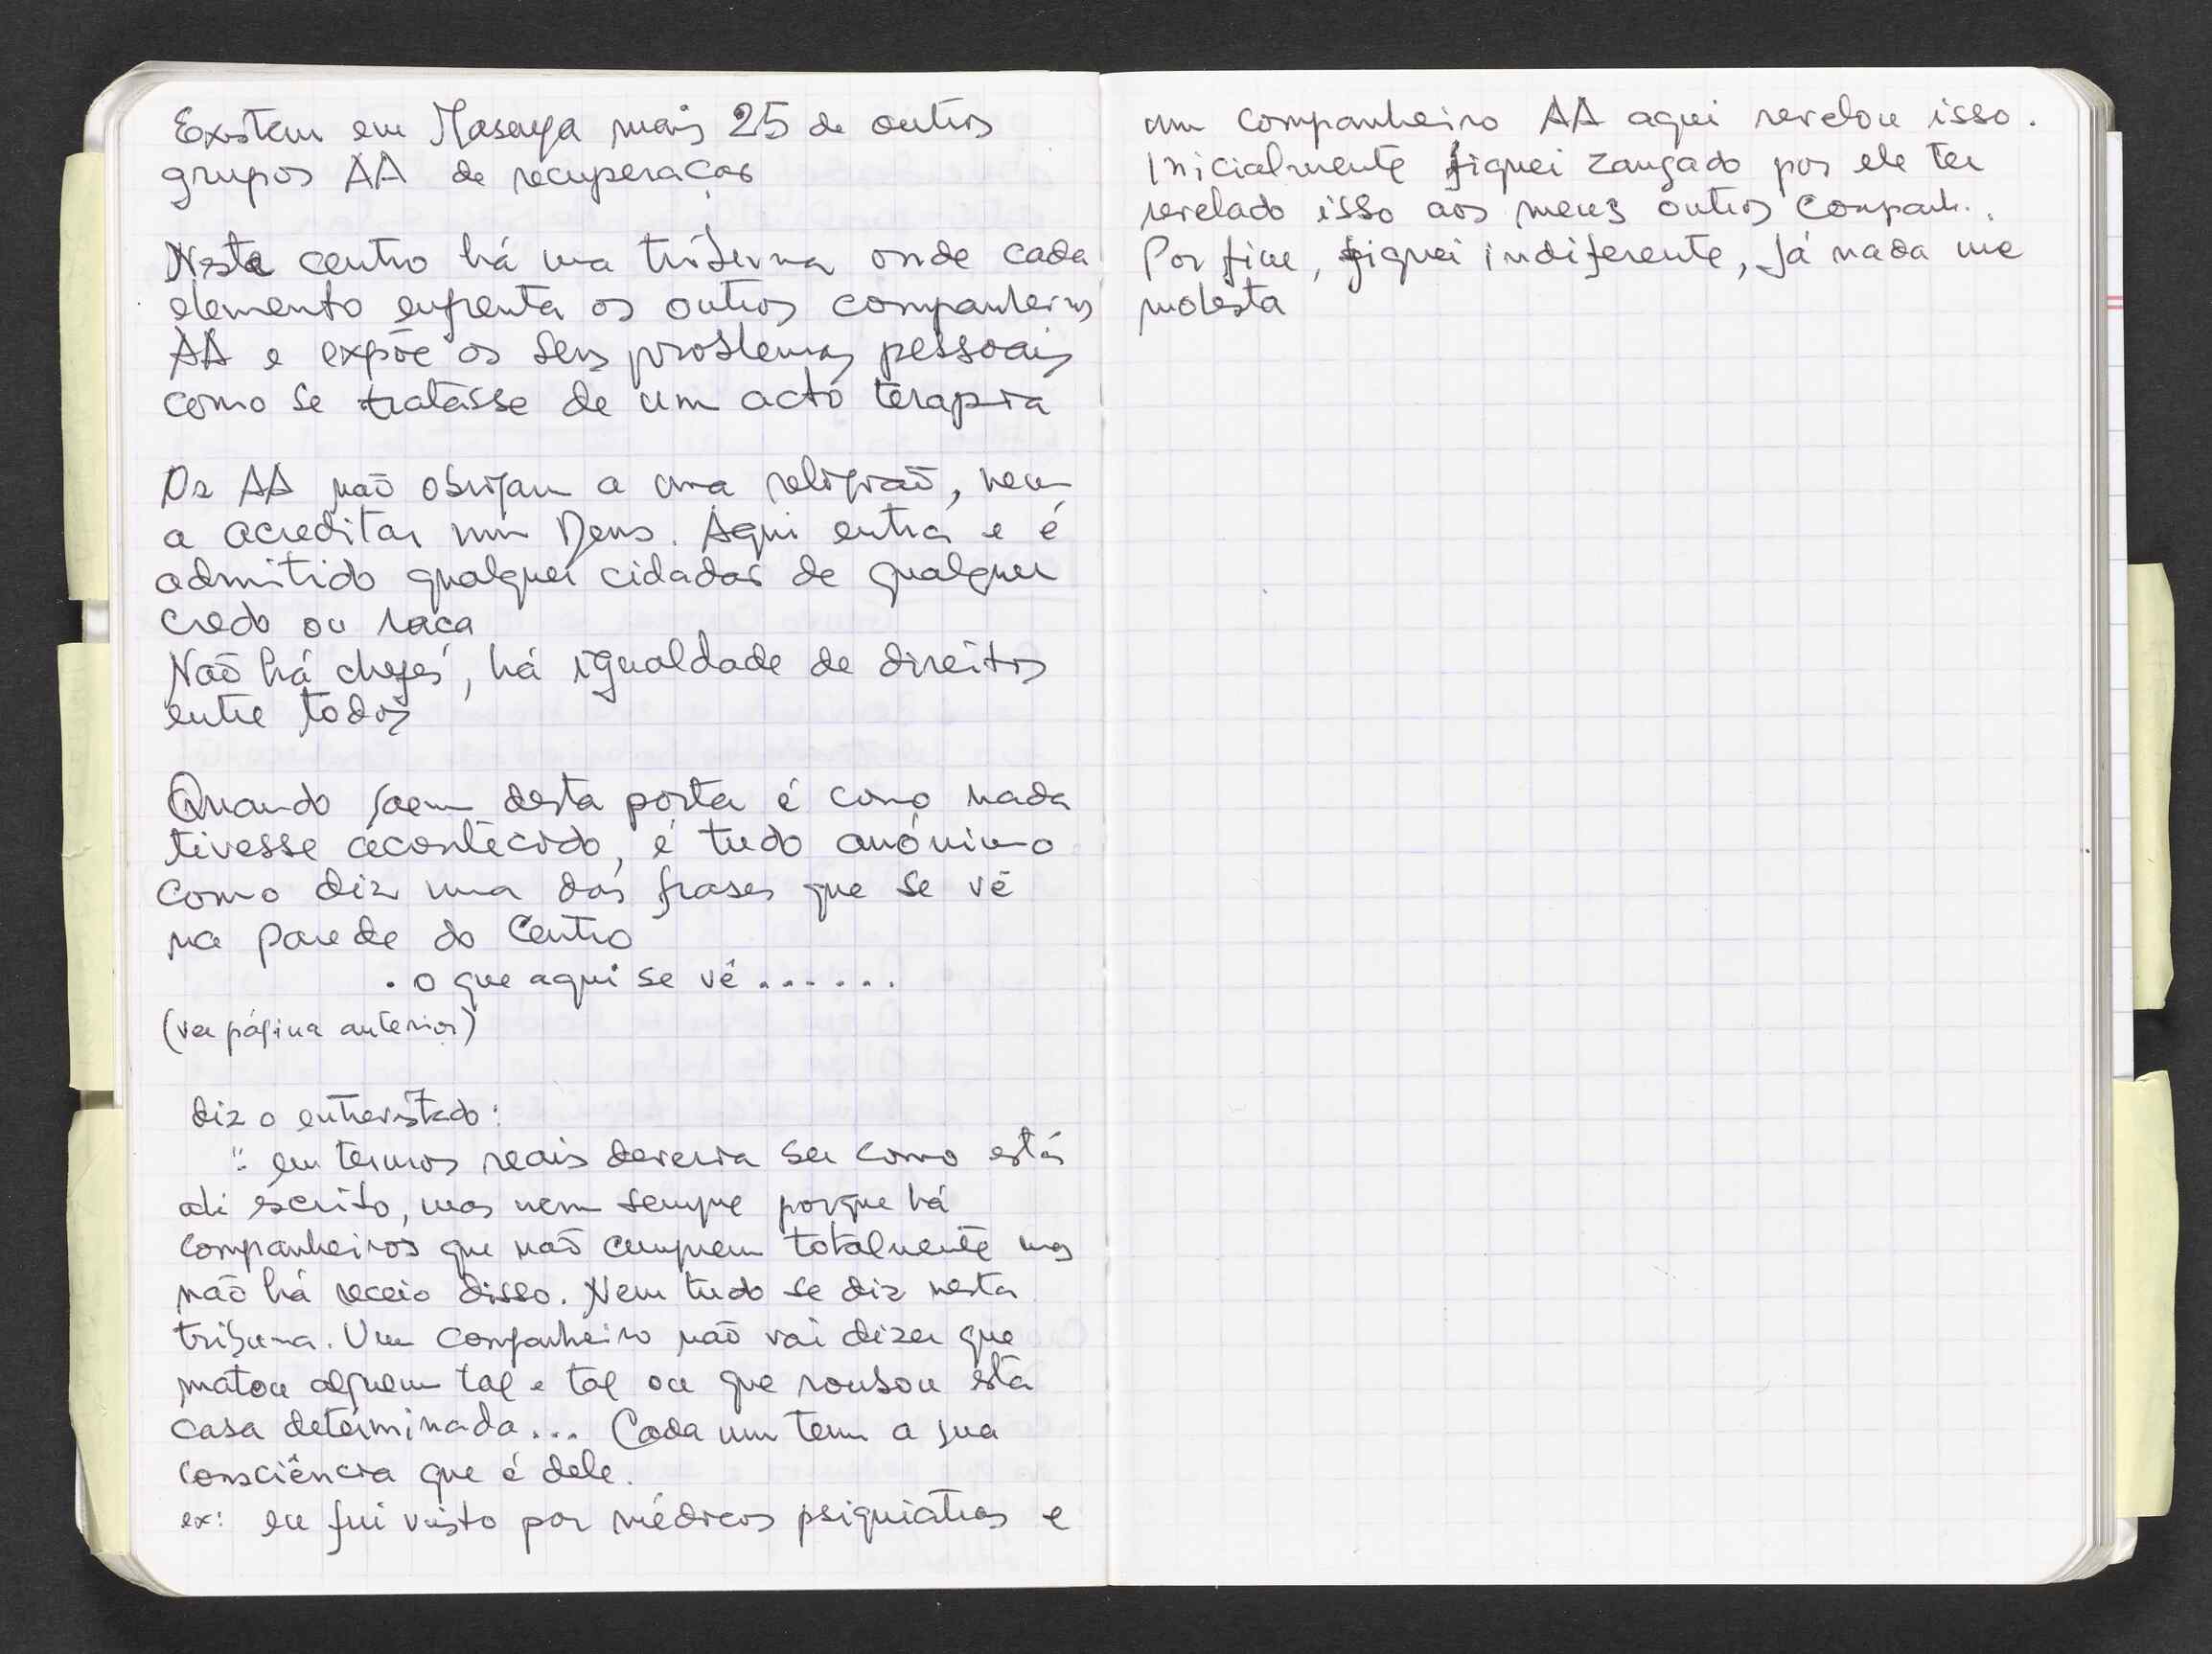 Existem em Masaya mais 25 de outros
grupos AA de recuperação
Neste centro há uma tribuna onde cada
elemento enfrenta os outros companheiros
AA e expõe os seus problemas pessoais
como se tratasse de um acto terapia
Os AA não obrigam a uma religião, nem
a acreditar num Deus. Aqui entra e é
admitido qualquer cidadão de qualquer
credo ou raça
Não há chefes, há igualdade de direitos
entre todos
Quando saem desta porta é como nada
tivesse acontecido, é tudo anónimo
como diz uma das frases que se vê
na parede do Centro
. o que aqui se vê . . . . . .
(ver página anterior)
diz o entrevistado:
": em termos reais deveria ser como está
ali escrito, mas nem sempre porque há
companheiros que não cumprem totalmente mas
não há receio disso. Nem tudo se diz nesta
tribuna. Um companheiro não vai dizer que
matou alguem tal e tal ou que roubou esta
casa determinada... Cada um tem a sua
consciência que é dele.
ex: eu fui visto por médicos psiquiatras e
um companheiro AA aqui revelou isso.
Inicialmente fiquei zangado por ele ter
revelado isso aos meus outros companh..
Por fim, fiquei indiferente, já nada me
molesta